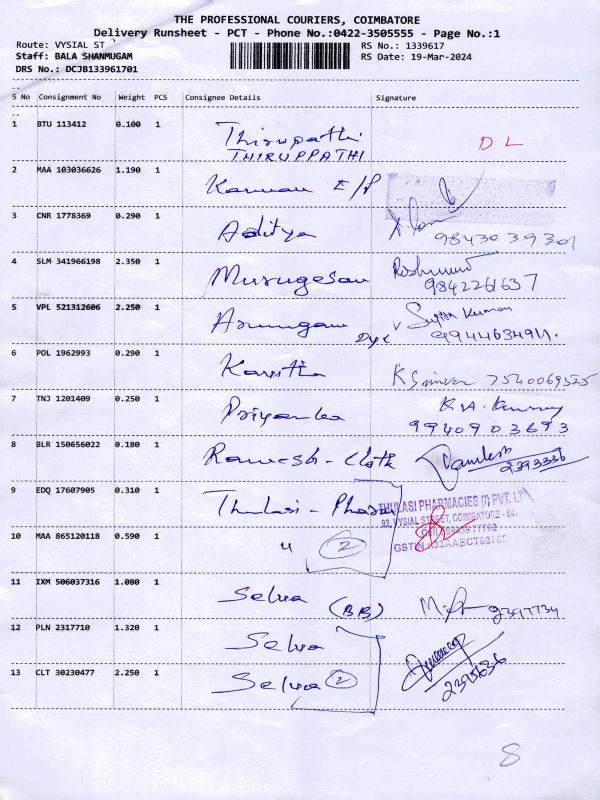 THE PROFESSIONAL COURIERS, COIMBATORE
Delivery Runsheet - PCT - Phone No.:0422-3505555 - Page No.:1
Route: VYSIAL ST RS No.: 1339617
Staff: BALA SHANMUGAM RS Date: 19-Mar-2024
DRS No.: DCJB133961701
S No Consignment No Weight PCS Consignee Details Signature
1 BTU 113412 0.100 1 Thirupathi
THIRUPPATHI DL
2 MAA 103036626 1.190 1 Kannan E/P
3 CNR 1778369 0.290 1 Aditya 9843039301
4 SLM 341966198 2.350 1 Murugesan 9842261637
5 VPL 521312606 2.250 1 Arumugam
6 POL 1962993 0.290 1 Kavitha 7540069525
7 TNJ 1201409 0.250 1 Priyanka
9940903693
8 BLR 150656022 0.180 1 Ramesh - Cloth
9 EDQ 17607905 0.310 1 Thulasi - THULASI PHARMACIES (I) PVT. LT
92, VYSIAL STREET, COIMBATORE - 
10 MAA 865120118 0.590 1 " 2 GSTIN
11 IXM 506037316 1.080 1 Selva (BB) 2397734
12 PLN 2317710 1.320 1 Selva
13 CLT 30230477 2.250 1 Selva 2
8